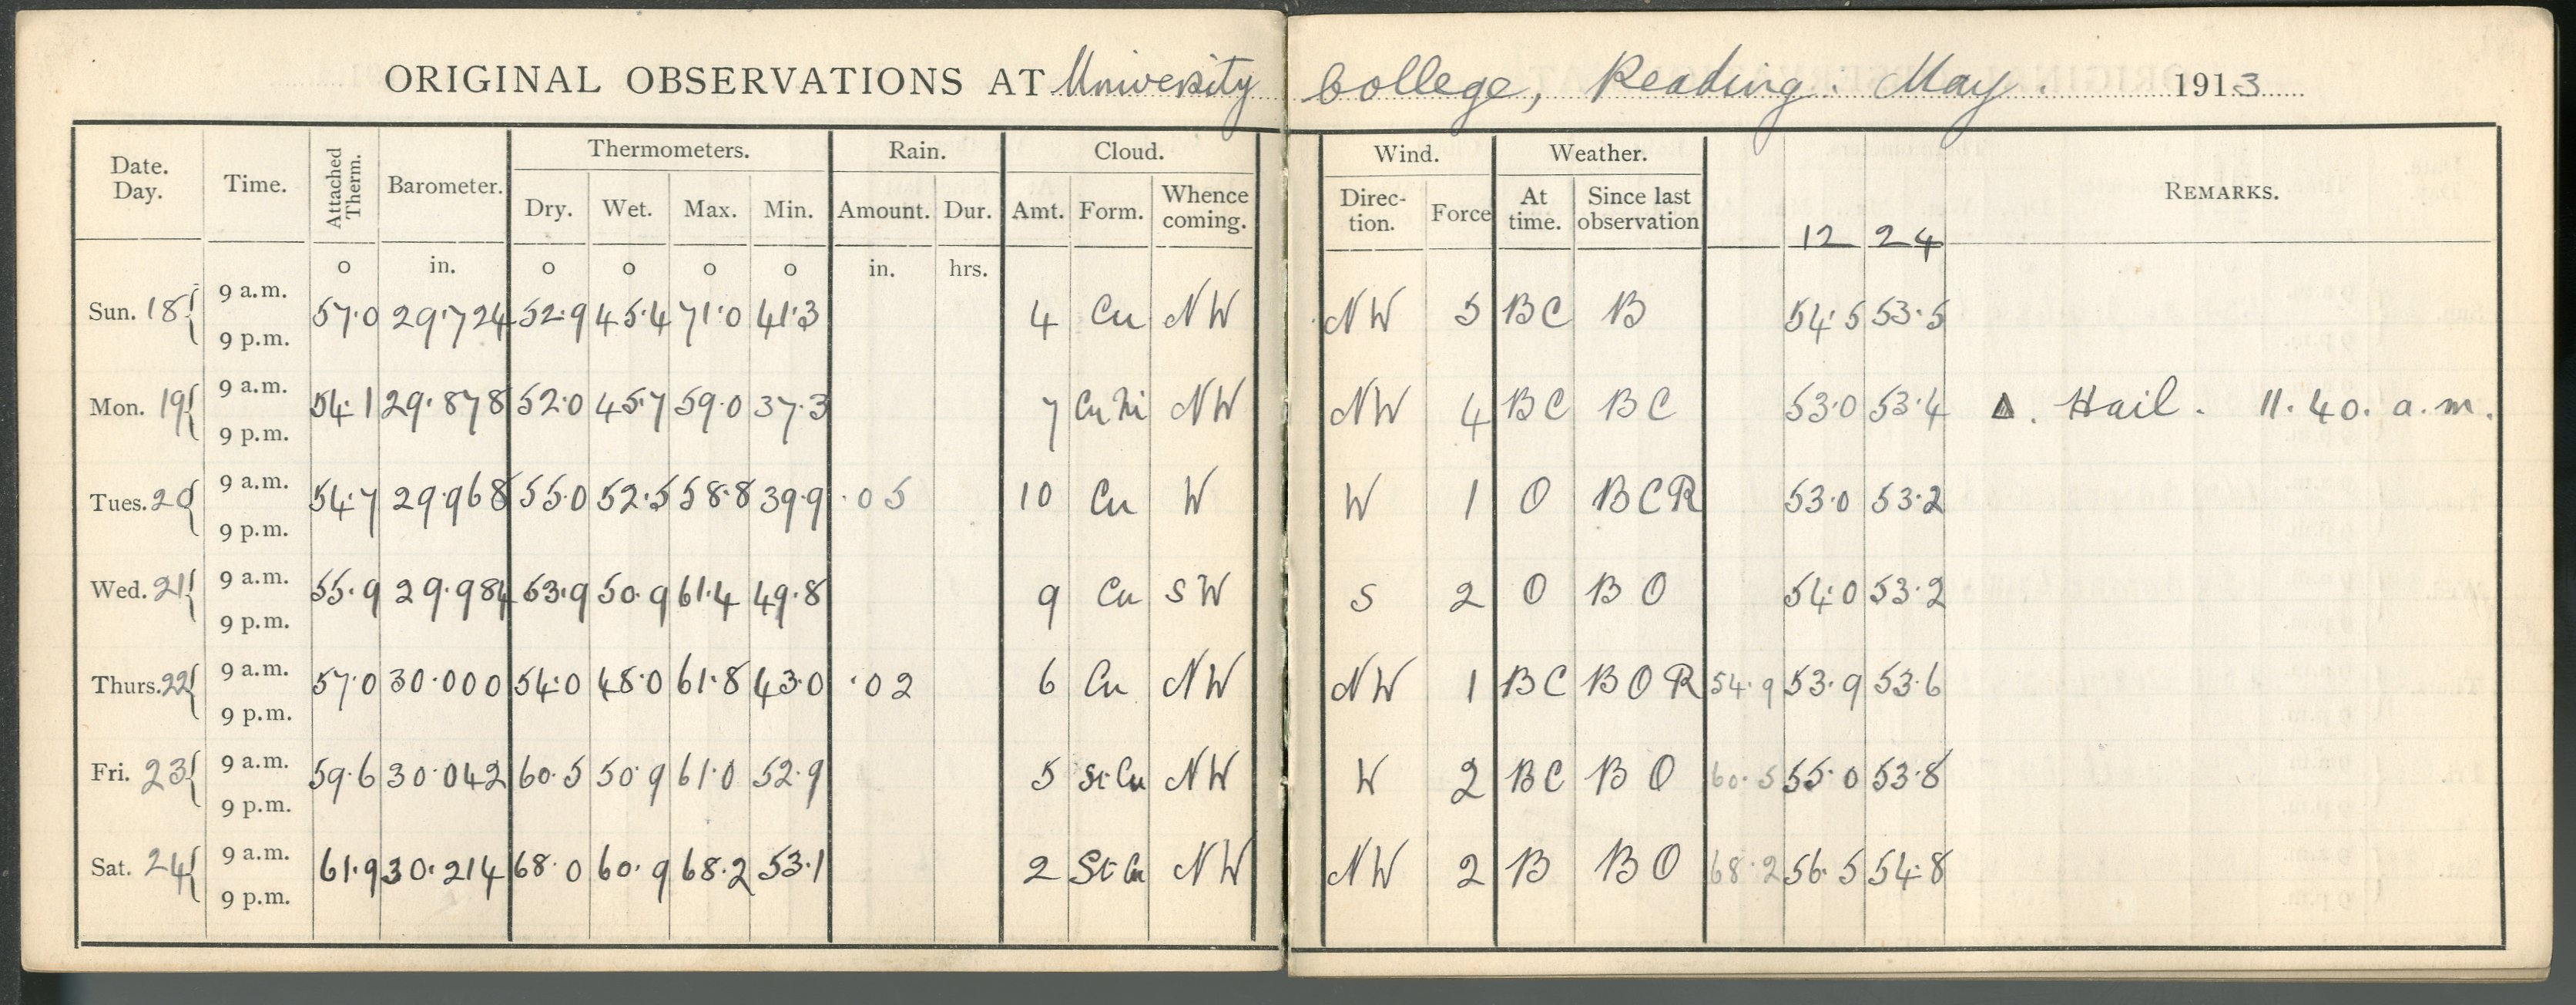 ORIGINAL OBSERVATIONS AT University College, Reading. May. 1913
Thermometers. Rain. Cloud. Wind. Weather.
Date. Day. Time. Attached Therm. Barometer. Dry. Wet. Max. Min. Amount. Dur. Amt. Form. Whence coming. Direc-tion. Force At time. Since last observation 12 24 REMARKS.
o in. o o o o in. hrs.
Sun. 18 9 a.m. 9 p.m. 57.0 29.724 52.9 45.4 71.0 41.3 4 Cu NW NW 5 BC B 54.5 53.5
Mon. 19 9 a.m. 9 p.m. 54.1 29.878 52.0 45.7 59.0 37.3 7 Cu Ni NW NW 4 BC BC 53.0 53.4 ▲. Hail. 11.40. a.m.
Tues. 20 9 a.m. 9 p.m. 54.7 29.968 55.0 52.5 58.8 39.9 .05 10 Cu W W 1 O BCR 53.0 53.2
Wed. 21 9 a.m. 9 p.m. 55.9 29.984 53.9 50.9 61.4 49.8 9 Cu SW S 2 O BO 54.0 53.2
Thurs. 22 9 a.m. 9 p.m. 57.0 30.000 54.0 48.0 61.8 43.0 .02 6 Cu NW NW 1 BC BOR 54.9 53.9 53.6
Fri. 23 9 a.m. 9 p.m. 59.6 30.042 60.5 50.9 61.0 52.9 5 St Cu NW W 2 BC BO 60.5 55.0 53.8
Sat. 24 9 a.m. 9 p.m. 61.9 30.214 68.0 60.9 68.2 53.1 2 St Cu NW NW 2 B BO 68.2 56.5 54.8